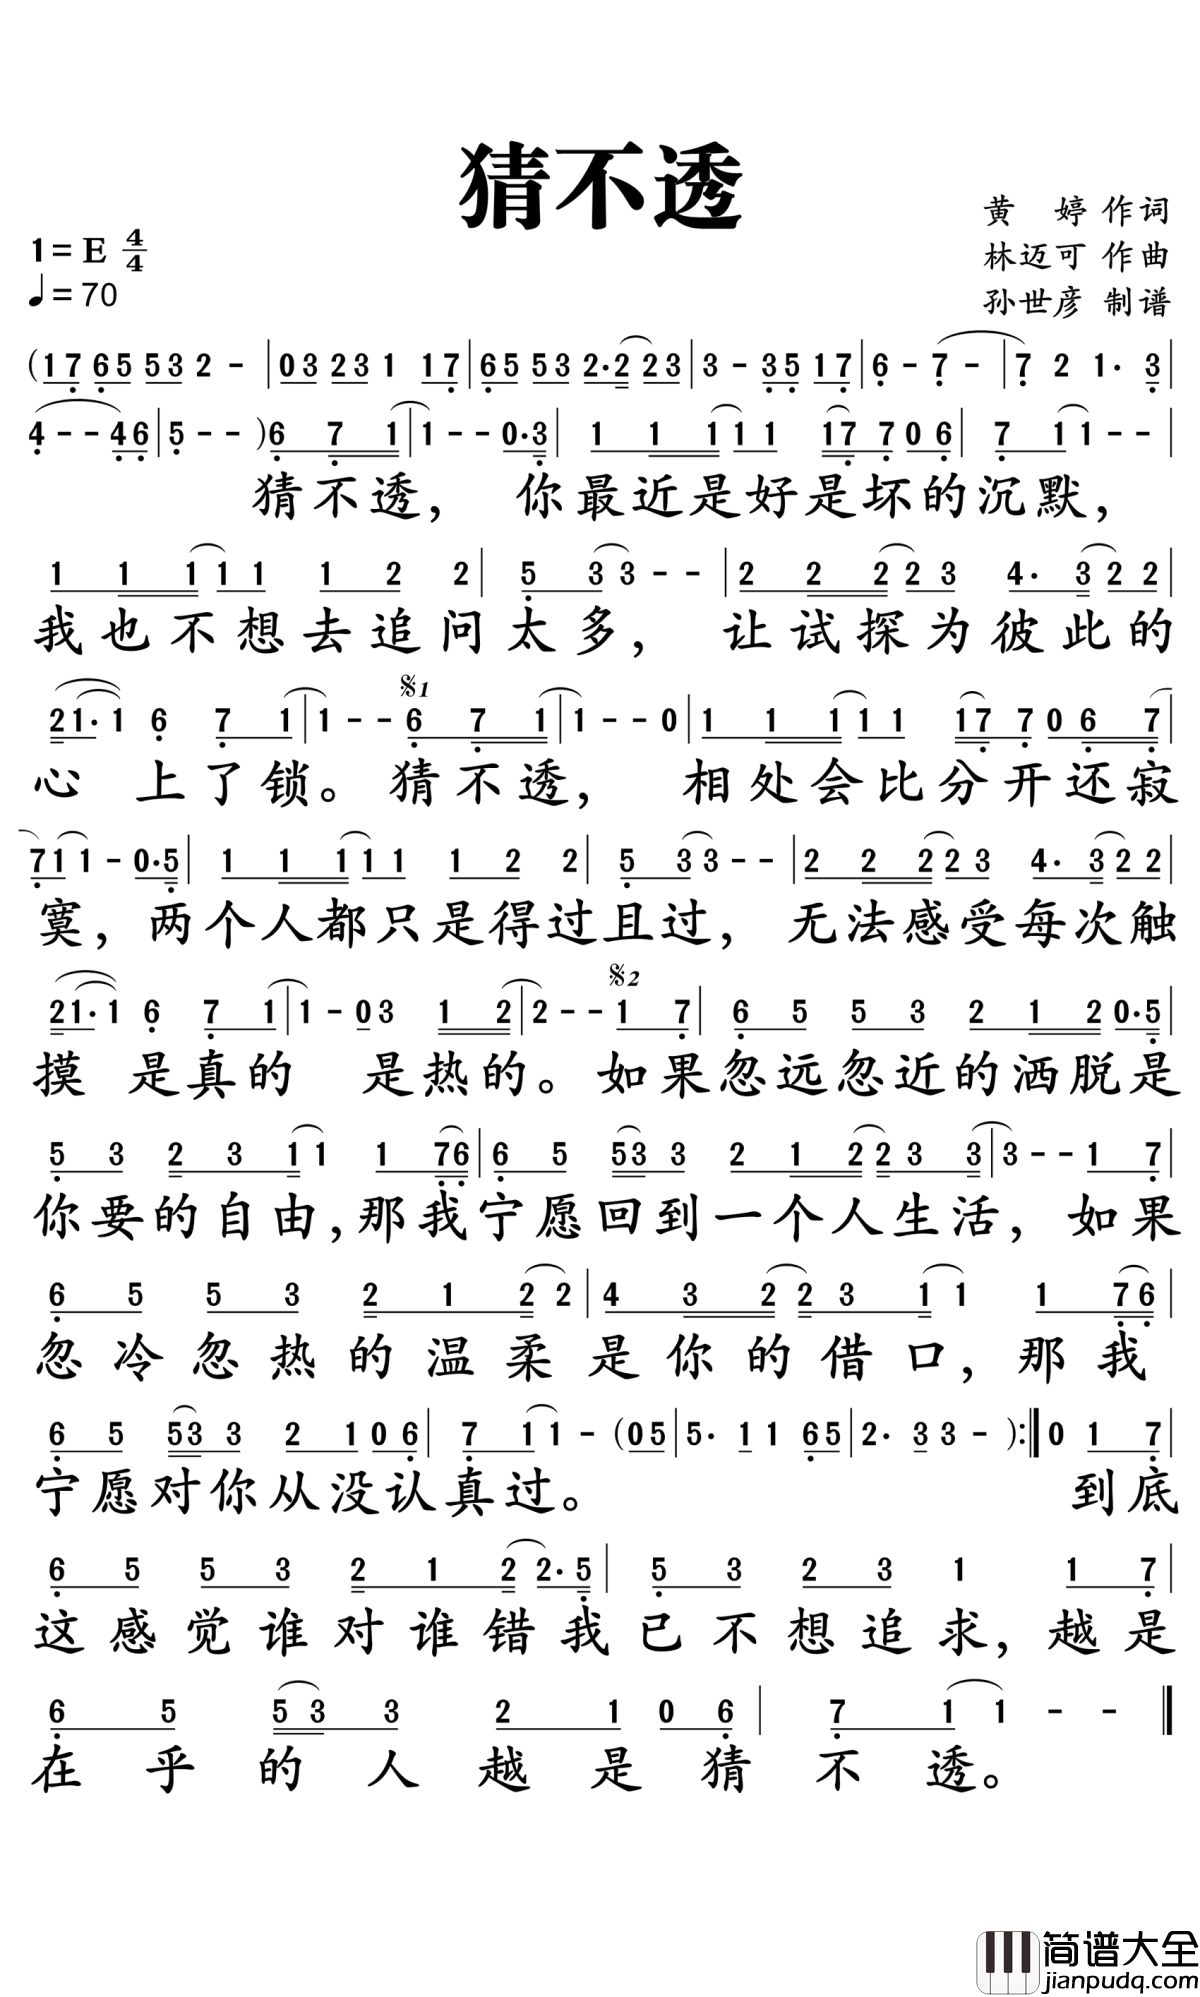 猜不透
黄 婷 作词
1=E 4/4
林迈可 作曲
♩=70
孙世彦 制谱
(17 65 53 2 - | 03 23 1 17 | 65 53 2·2 23 | 3 - 35 17 | 6 - 7 - | 7 2 1· 3
4 - - 46 | 5 - - ) 6 7 1 | 1 - - 0·3 | 1 1 1 1 1 17 7 0 6 | 7 1 1 - - |
猜不透, 你最近是好是坏的沉默,
1 1 1 1 1 1 2 2 | 5 3 3 - - | 2 2 2 2 3 4· 3 2 2 |
我也不想去追问太多, 让试探为彼此的
𝄋1
2 1· 1 6 7 1 | 1 - - 6 7 1 | 1 - - 0 | 1 1 1 1 1 17 7 0 6 7 |
心 上了锁。猜不透, 相处会比分开还寂
7 1 1 - 0·5 | 1 1 1 1 1 1 2 2 | 5 3 3 - - | 2 2 2 2 3 4· 3 2 2 |
寞, 两个人都只是得过且过, 无法感受每次触
𝄋2
2 1· 1 6 7 1 | 1 - 0 3 1 2 | 2 - - 1 7 | 6 5 5 3 2 1 2 0·5 |
摸 是真的 是热的。如果忽远忽近的洒脱是
5 3 2 3 1 1 1 76 | 6 5 53 3 2 1 2 2 3 3 | 3 - - 1 7 |
你要的自由,那我宁愿回到一个人生活, 如果
6 5 5 3 2 1 2 2 | 4 3 2 2 3 1 1 1 76 |
忽冷忽热的温柔是你的借口, 那我
6 5 53 3 2 1 0 6 | 7 1 1 - (05 | 5· 1 1 65 | 2· 3 3 - ) :‖ 0 1 7 |
宁愿对你从没认真过。 到底
6 5 5 3 2 1 2 2· 5 | 5 3 2 3 1 1 7 |
这感觉谁对谁错我已不想追求, 越是
6 5 5 3 3 2 1 0 6 | 7 1 1 - - ‖
在乎的人越是猜不透。
简谱大全
jianpudq.com